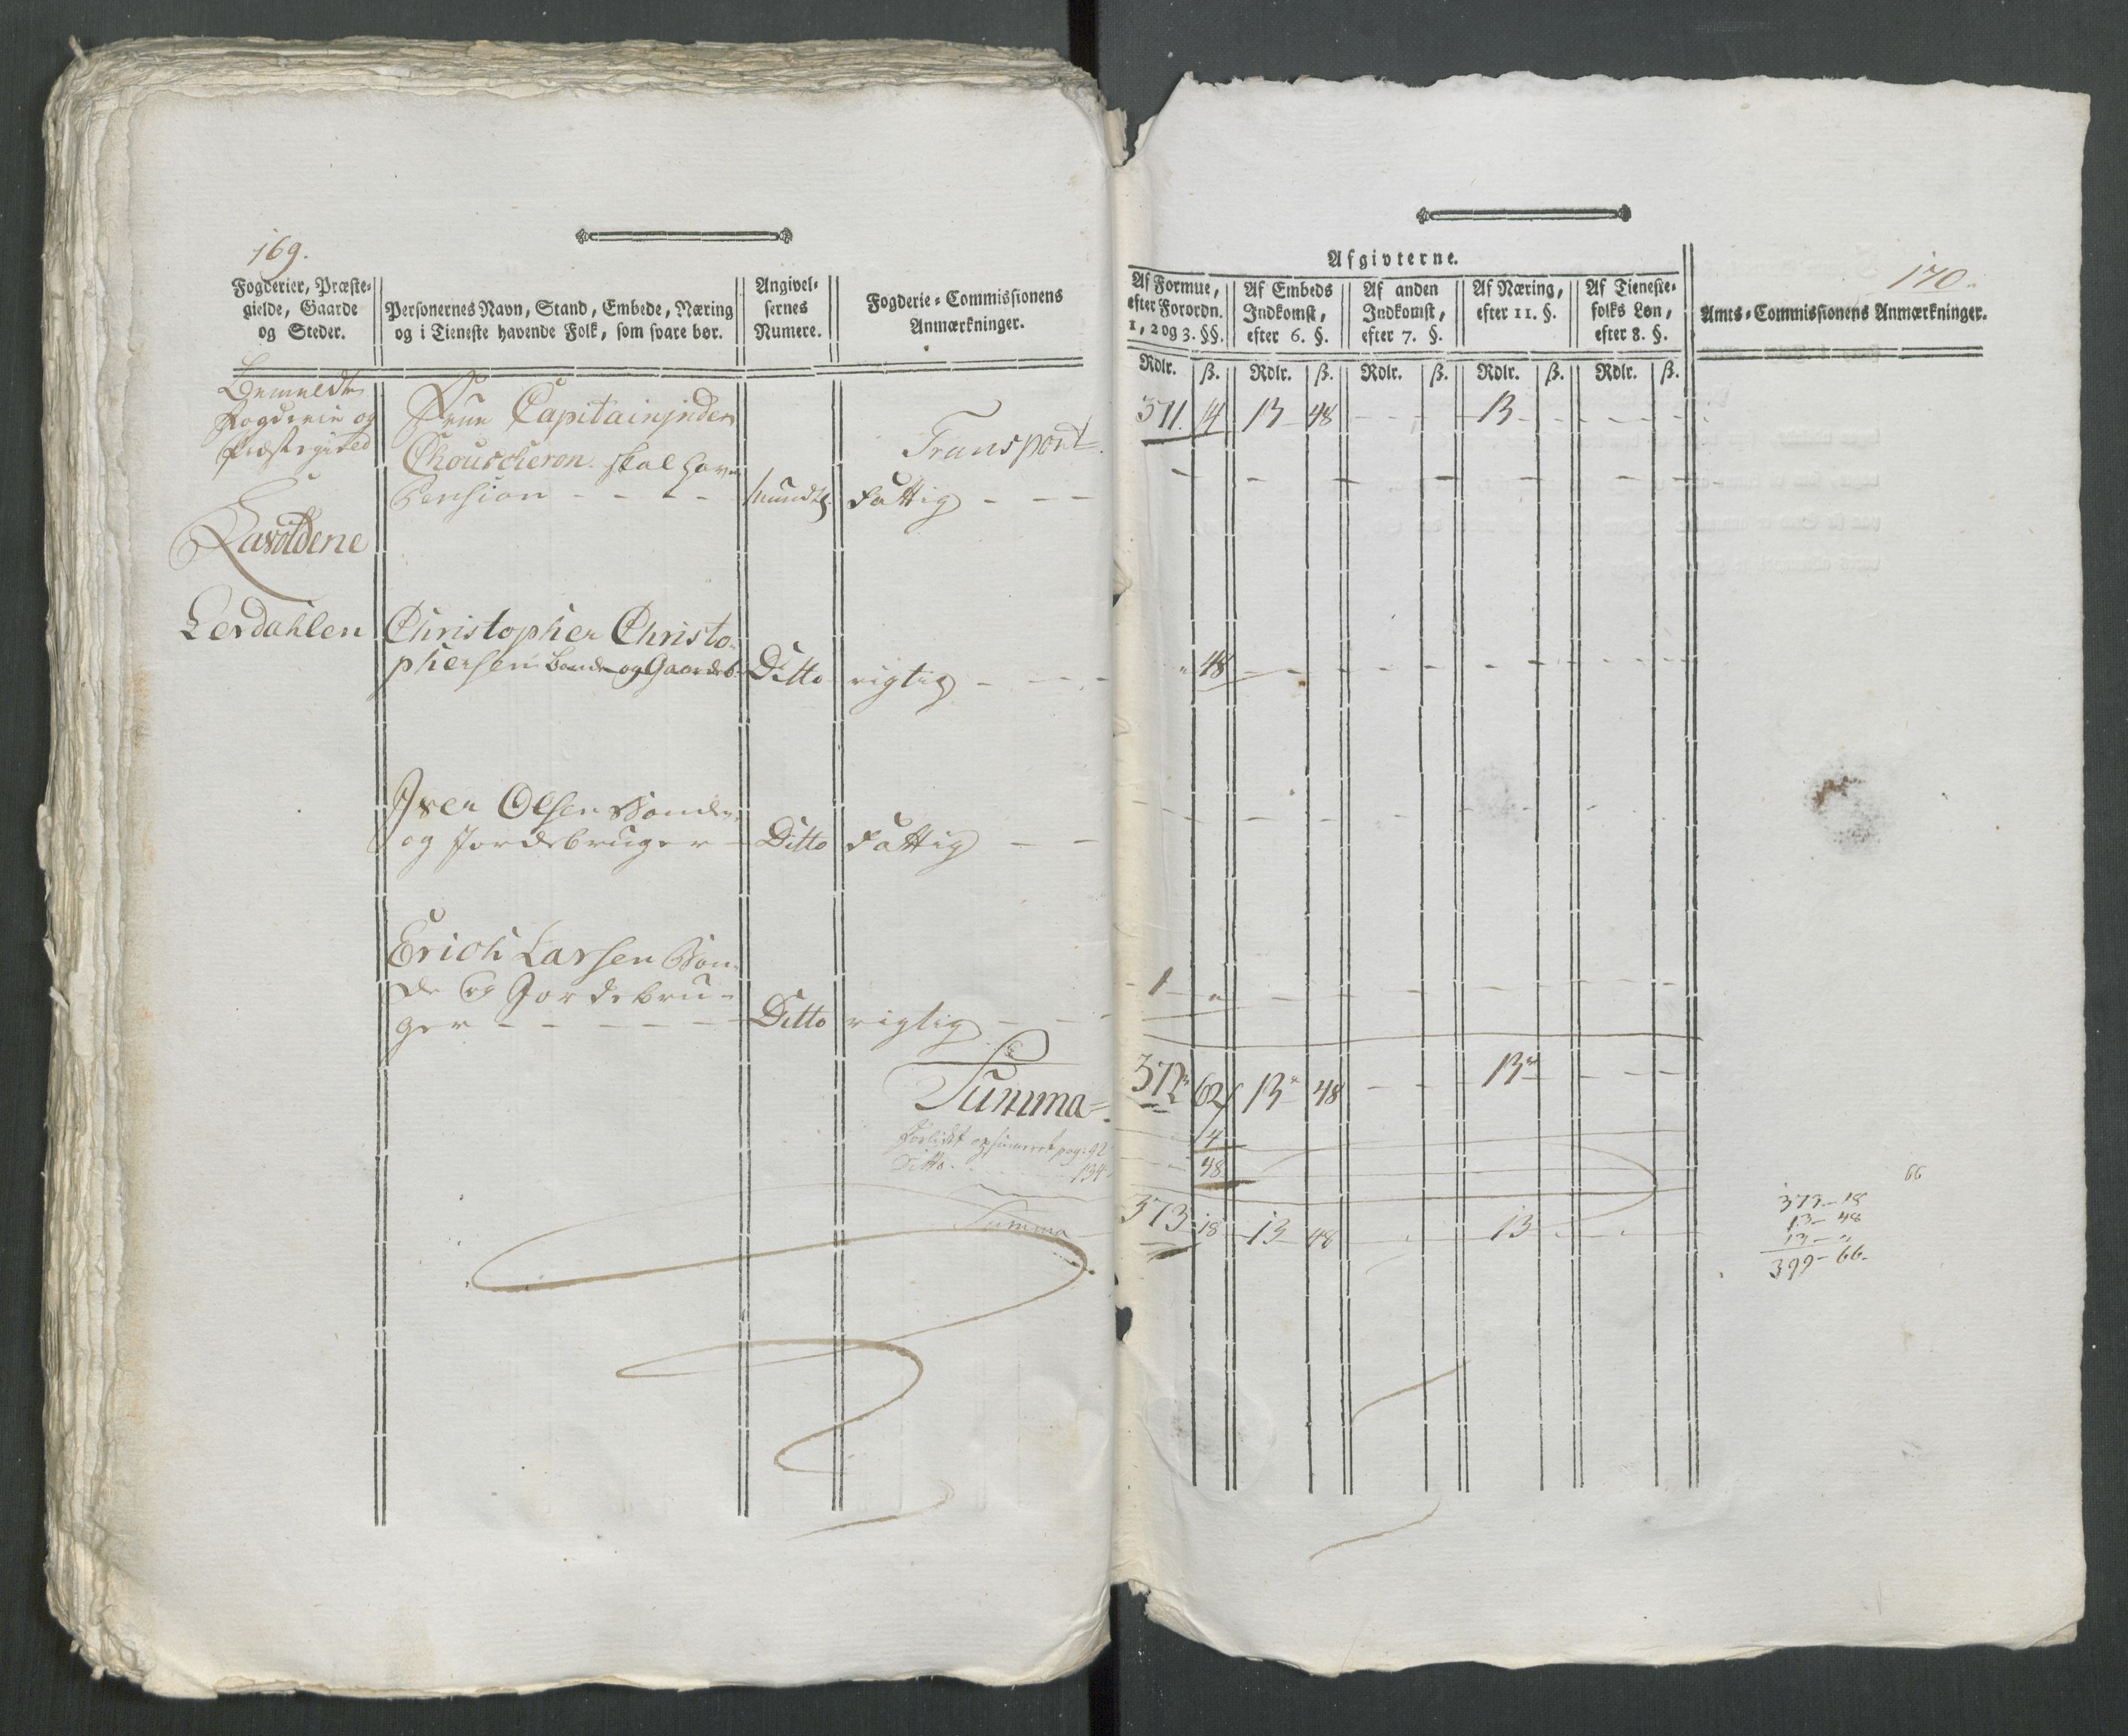 169.
Fogderier, Præste-
gielde, Gaarde
og Steder.
Personernes Navn, Stand, Embede, Næring
og i Tieneste havende Folk, som svare bør.
Angivel-
sernes
Numere.
Fogderie-Commissionens
Anmærkninger.
Bemeldte
Fogderie og
Præstegield
Frue Capitainjnden
Chouscheron skal have
Pension - - - -
mundtl.
Transport
Fattig - - -
Lerdahlen
Christopher Christo-
phersen Bonde og Gaardeb.
Ditto
rigtig - - -
Iver Olsen Bonde
og Jordebruger
Ditto
Fattig - -
Erich Larsen Bon-
de og Jordebru-
ger - - - - -
Ditto
rigtig - - -
Summa
pag: 92
Ditto - 134
Summa
170.
Afgivterne.
Af Formue,
efter Forordn.
1, 2 og 3. §§.
Af Embeds
Indkomst,
efter 6. §.
Af anden
Indkomst,
efter 7. §.
Af Næring,
efter 11. §.
Af Tieneste-
folks Løn,
efter 8. §.
Amts-Commissionens Anmærkninger.
Rdlr. ß. Rdlr. ß. Rdlr. ß. Rdlr. ß. Rdlr. ß.
371. 14 13 48 - - 13 - - -
- - - - - - - - - -
" 48 - - - - - - - -
- - - - - - - - - -
1 " - - - - - - - -
372 62 13 48 - - 13 - - -
14
48
373 18 13 48 - - 13 - - -
66
373 - 18
13 - 48
13 - "
399 - 66.